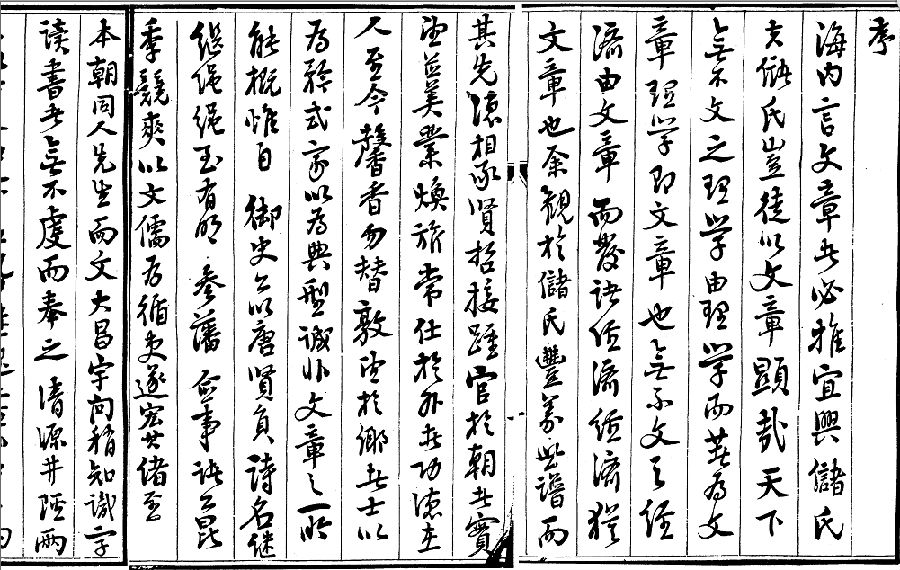 序
海内言文章者必雅宜興儲氏
夫儲氏豈徒以文章顯哉天下
無不文之理學由理學而發为文
章理學即文章也無不文之经
濟由文章而發诸经濟经濟猶
文章也余觀於儲氏豐義堂譜而
其先德相承賢哲接踵官於朝者實
望並美業焕旂常仕於外者功德在
人至今馨香勿替敦望於鄉者士以
为矜式家以为典型誠非文章之一端
能概惟自 御史公以唐賢負詩名继
继绳绳至有明 參藩 僉事诸公昆
季競爽以文儒为循吏遂宏其绪至
本朝同人先生而文大昌宇内稍知識字
读書者無不虔而奉之 清源井陘兩